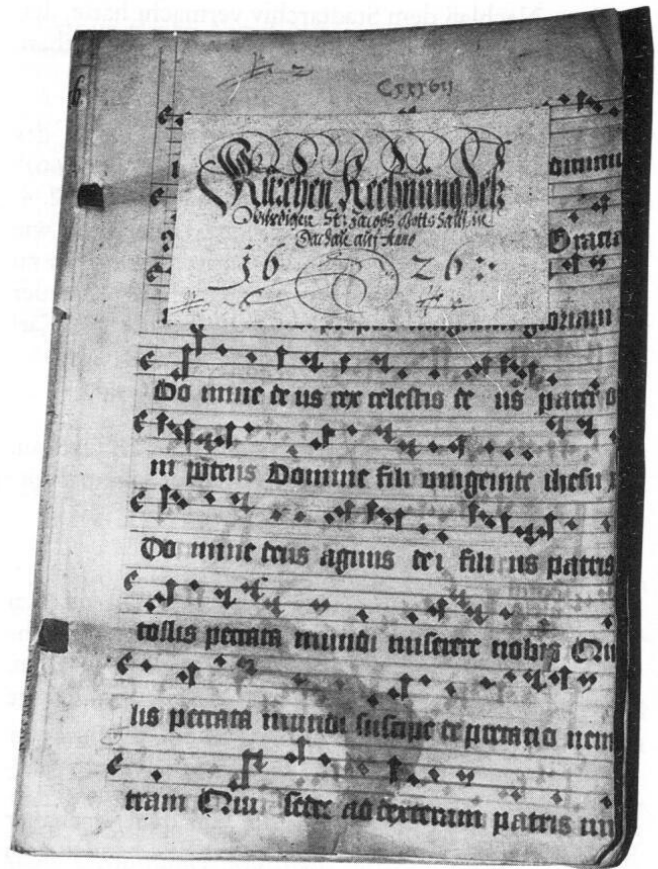 Cxxxvii
Kirchen Rechnung deß
würdigen St: Jacobs Gotts Hauß in
Dachau auf Anno
1626
Gracia
gloriam
Do mine de us rex celestis de us pater o
ni potens Domine fili unigenite ihesu x
Do mine deus agnus dei fili us patris
tollis peccata mundi miserere nobis Qui
lis peccata mundi suscipe de precatio nem
tram Qui sedes ad dexteram patris mi